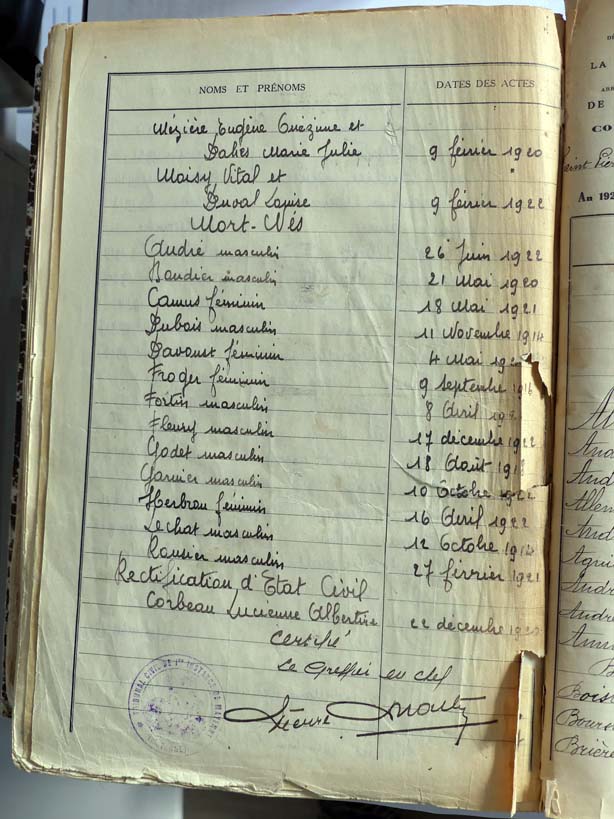 NOMS ET PRÉNOMS
DATES DES ACTES
Mézière Eugène Onézime et
Dabès Marie Julie 9 février 1920
Moisy Vital et
Duval Louise 9 février 1922
Mort-Nés
André masculin 26 Juin 1922
masculin 21 Mai 1920
Camus féminin 18 Mai 1921
Dubois masculin 11 Novembre 1914
Davoust féminin 4 Mai
Froger féminin 9 Septembre 1916
Fortin masculin 8 Avril
Fleury masculin 17 décembre 1922
Godet masculin 18 Août 1918
Garnier masculin 10 Octobre 1922
Herbron féminin 16 Avril 1922
Lechat masculin 12 Octobre 1914
masculin 27 février 1921
Rectification d'Etat Civil
Corbeau Lucienne Albertine 22 décembre
Certifié
Le Greffier en chef
TRIBUNAL CIVIL DE 1re INSTANCE DE
LA
DE
CO
An 192
Boist
Bours
Brière